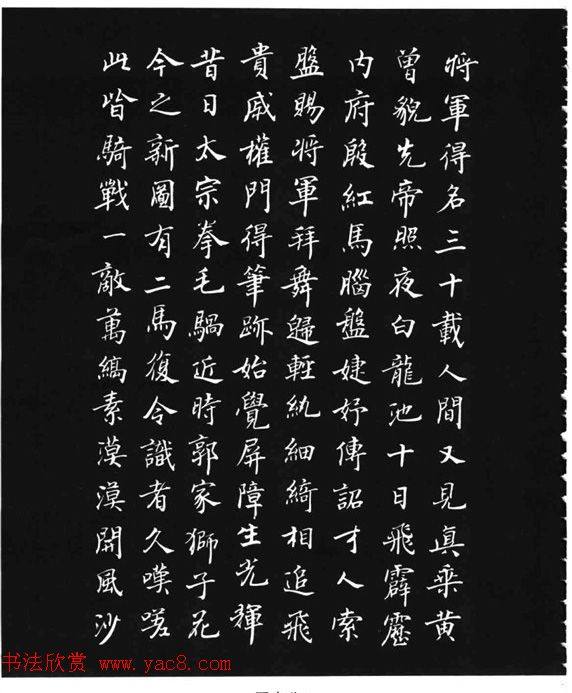 將軍得名三十載人間又見眞乘黃
曾貌先帝照夜白龍池十日飛霹靂
內府殷紅馬腦盤婕妤傳詔才人索
盤賜將軍拜舞歸輕紈細綺相追飛
貴戚權門得筆跡始覺屏障生光輝
昔日太宗拳毛騧近時郭家獅子花
今之新圖有二馬復令識者久嘆嗟
此皆騎戰一敵萬縞素漠漠開風沙
书法欣赏 www.yac8.com